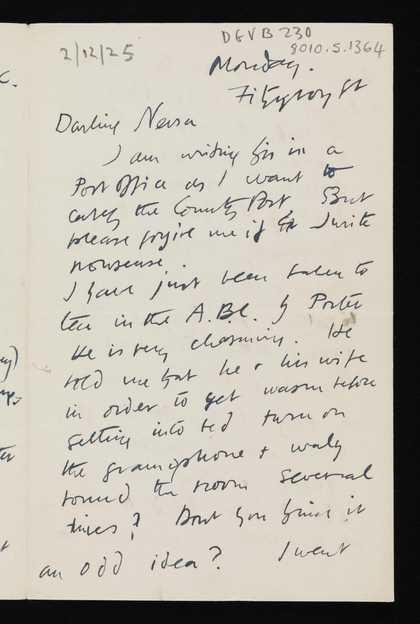 2/12/25
DGVB 230
8010.5.1364
Monday.
Fitzroy St
Darling Nessa
I am writing this in a
Post Office as I want to
catch the Country Post But
please forgive me if I write
nonsense.
I have just been taken to
tea in the A.B.C. by Porter
He is very charming. He
told me that he & his wife
in order to get warm before
getting into bed turn on
the gramophone & waltz
round the room several
times? Dont you think it
an odd idea? I went